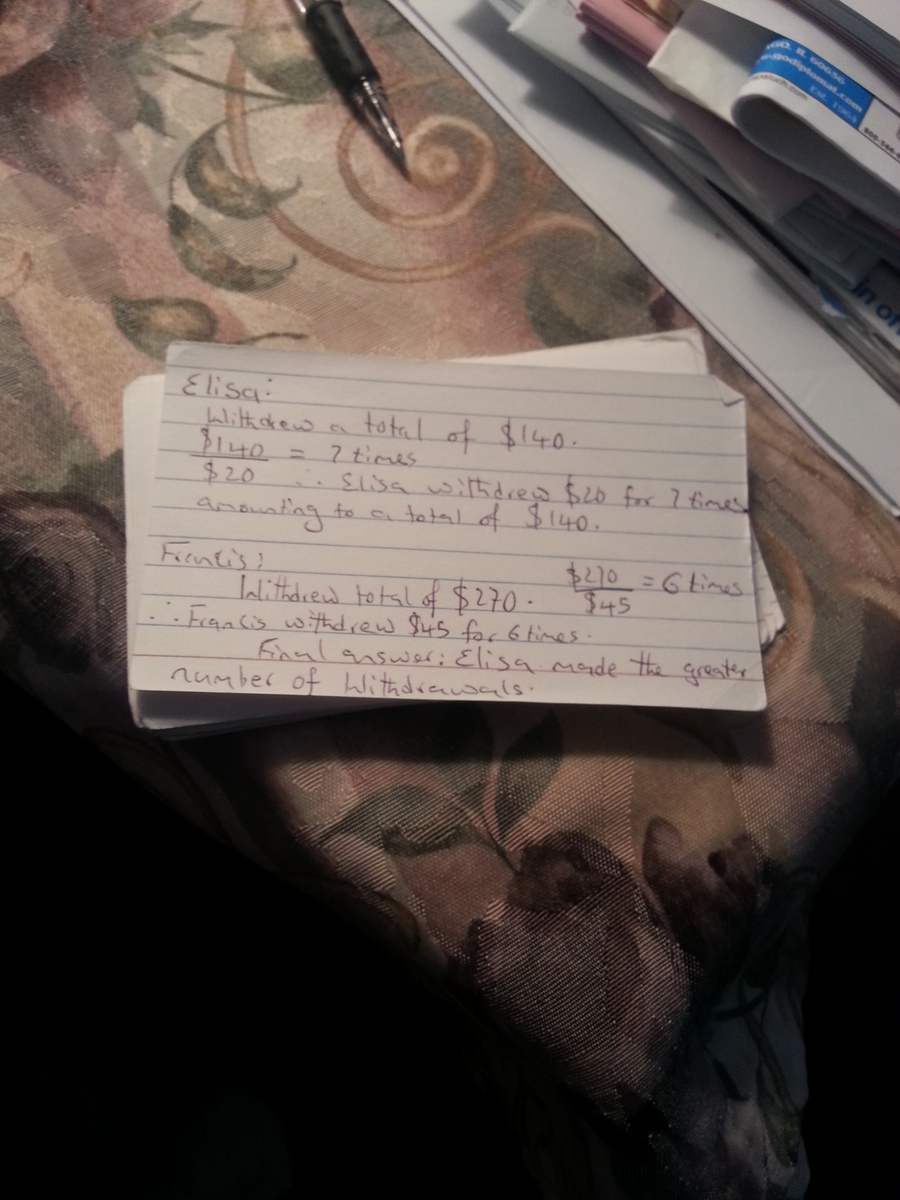 Elisa:
Withdrew a total of $140.
$140 = 7 times
$20 ∴ Elisa withdrew $20 for 7 times
amounting to a total of $140.
Francis:
$270 = 6 times
Withdrew total of $270. $45
∴ Francis withdrew $45 for 6 times.
Final answer: Elisa made the greater
number of Withdrawals.
GO, IL 60656
.godiplomat.com
Est. 1964
.com
In on